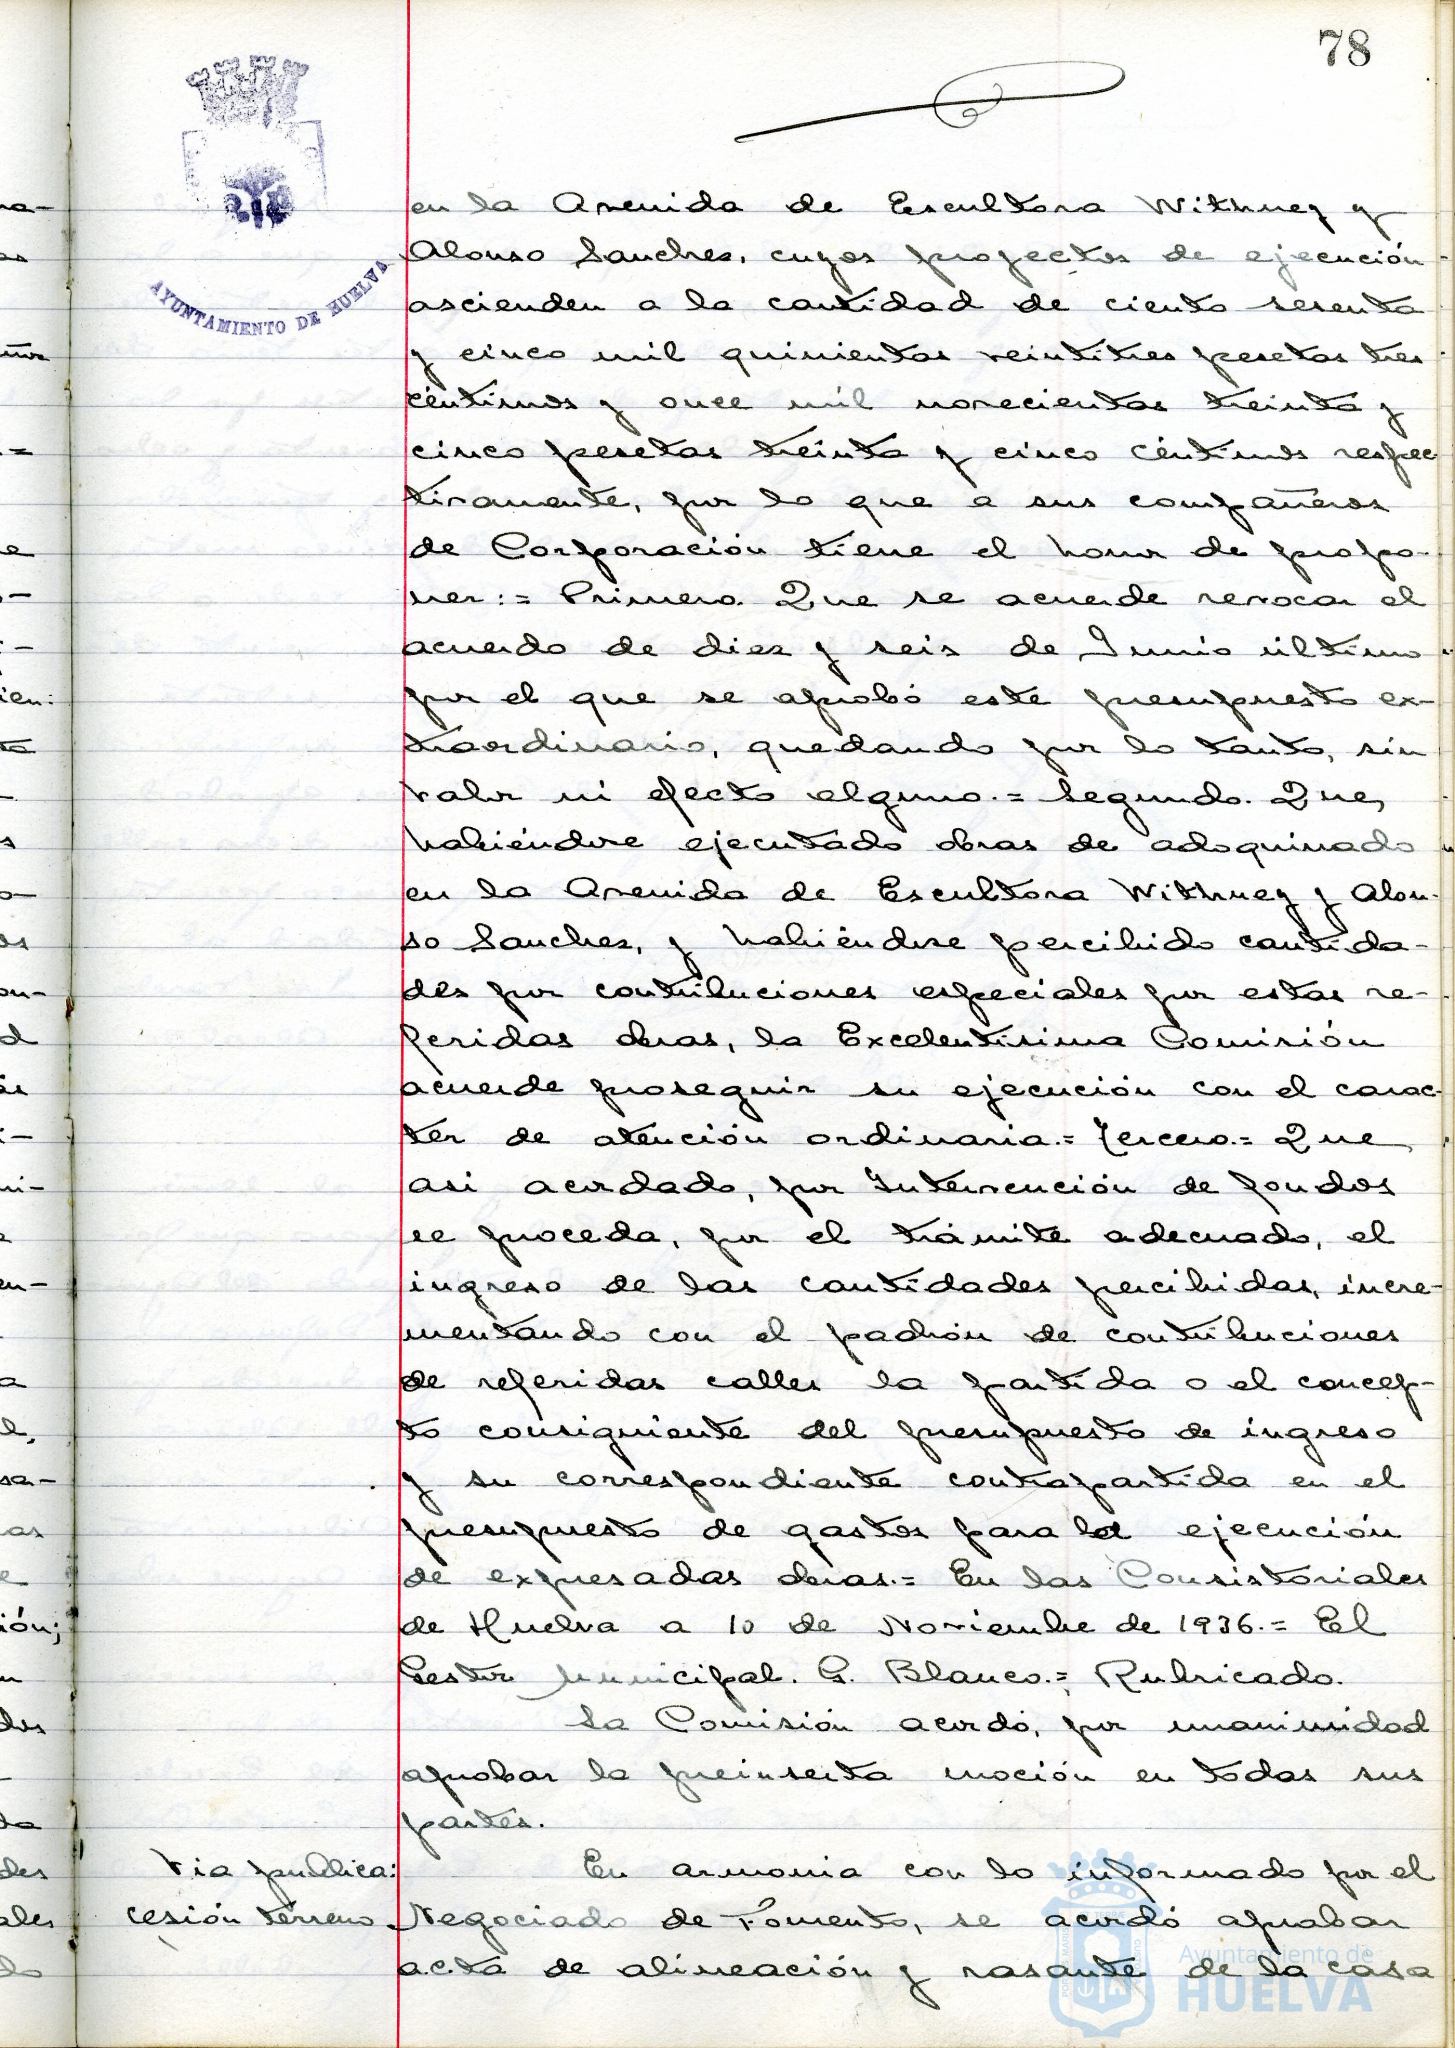 78
AYUNTAMIENTO DE HUELVA
en la Avenida de Escultora Withney y
Alonso Sanchez, cuyos proyectos de ejecución
ascienden a la cantidad de ciento sesenta
y cinco mil quinientas veintitres pesetas tres
céntimos y once mil novecientas treinta y
cinco pesetas treinta y cinco céntimos respec
tivamente, por lo que a sus compañeros
de Corporación tiene el honor de propo-
ner:= Primero. Que se acuerde revocar el
acuerdo de diez y seis de Junio último
por el que se aprobó este presupuesto ex-
traordinario, quedando por lo tanto, sin
valor ni efecto alguno.= Segundo. Que,
habiéndose ejecutado obras de adoquinado
en la Avenida de Escultora Withney y Alon-
so Sanchez, y habiéndose percibido cantida-
des por contribuciones especiales por estas re-
feridas obras, la Excelentísima Comisión
acuerde proseguir su ejecución con el carac-
ter de atención ordinaria.= Tercero.= Que
asi acordado, por Intervención de fondos
se proceda, por el trámite adecuado, el
ingreso de las cantidades percibidas, incre-
mentando con el padrón de contribuciones
de referidas calles la partida o el concep-
to consiguiente del presupuesto de ingreso
y su correspondiente contrapartida en el
presupuesto de gastos para la ejecución
de expresadas obras.= En las Consistoriales
de Huelva a 10 de Noviembre de 1936.= El
Gestor Municipal. G. Blanco.= Rubricado.
La Comisión acordó, por unanimidad
aprobar la preinserta moción en todas sus
partes.
Via publica:
cesión terreno
En armonia con lo informado por el
Negociado de Fomento, se acordó aprobar
acta de alineación y rasante de la casa
Ayuntamiento de
HUELVA